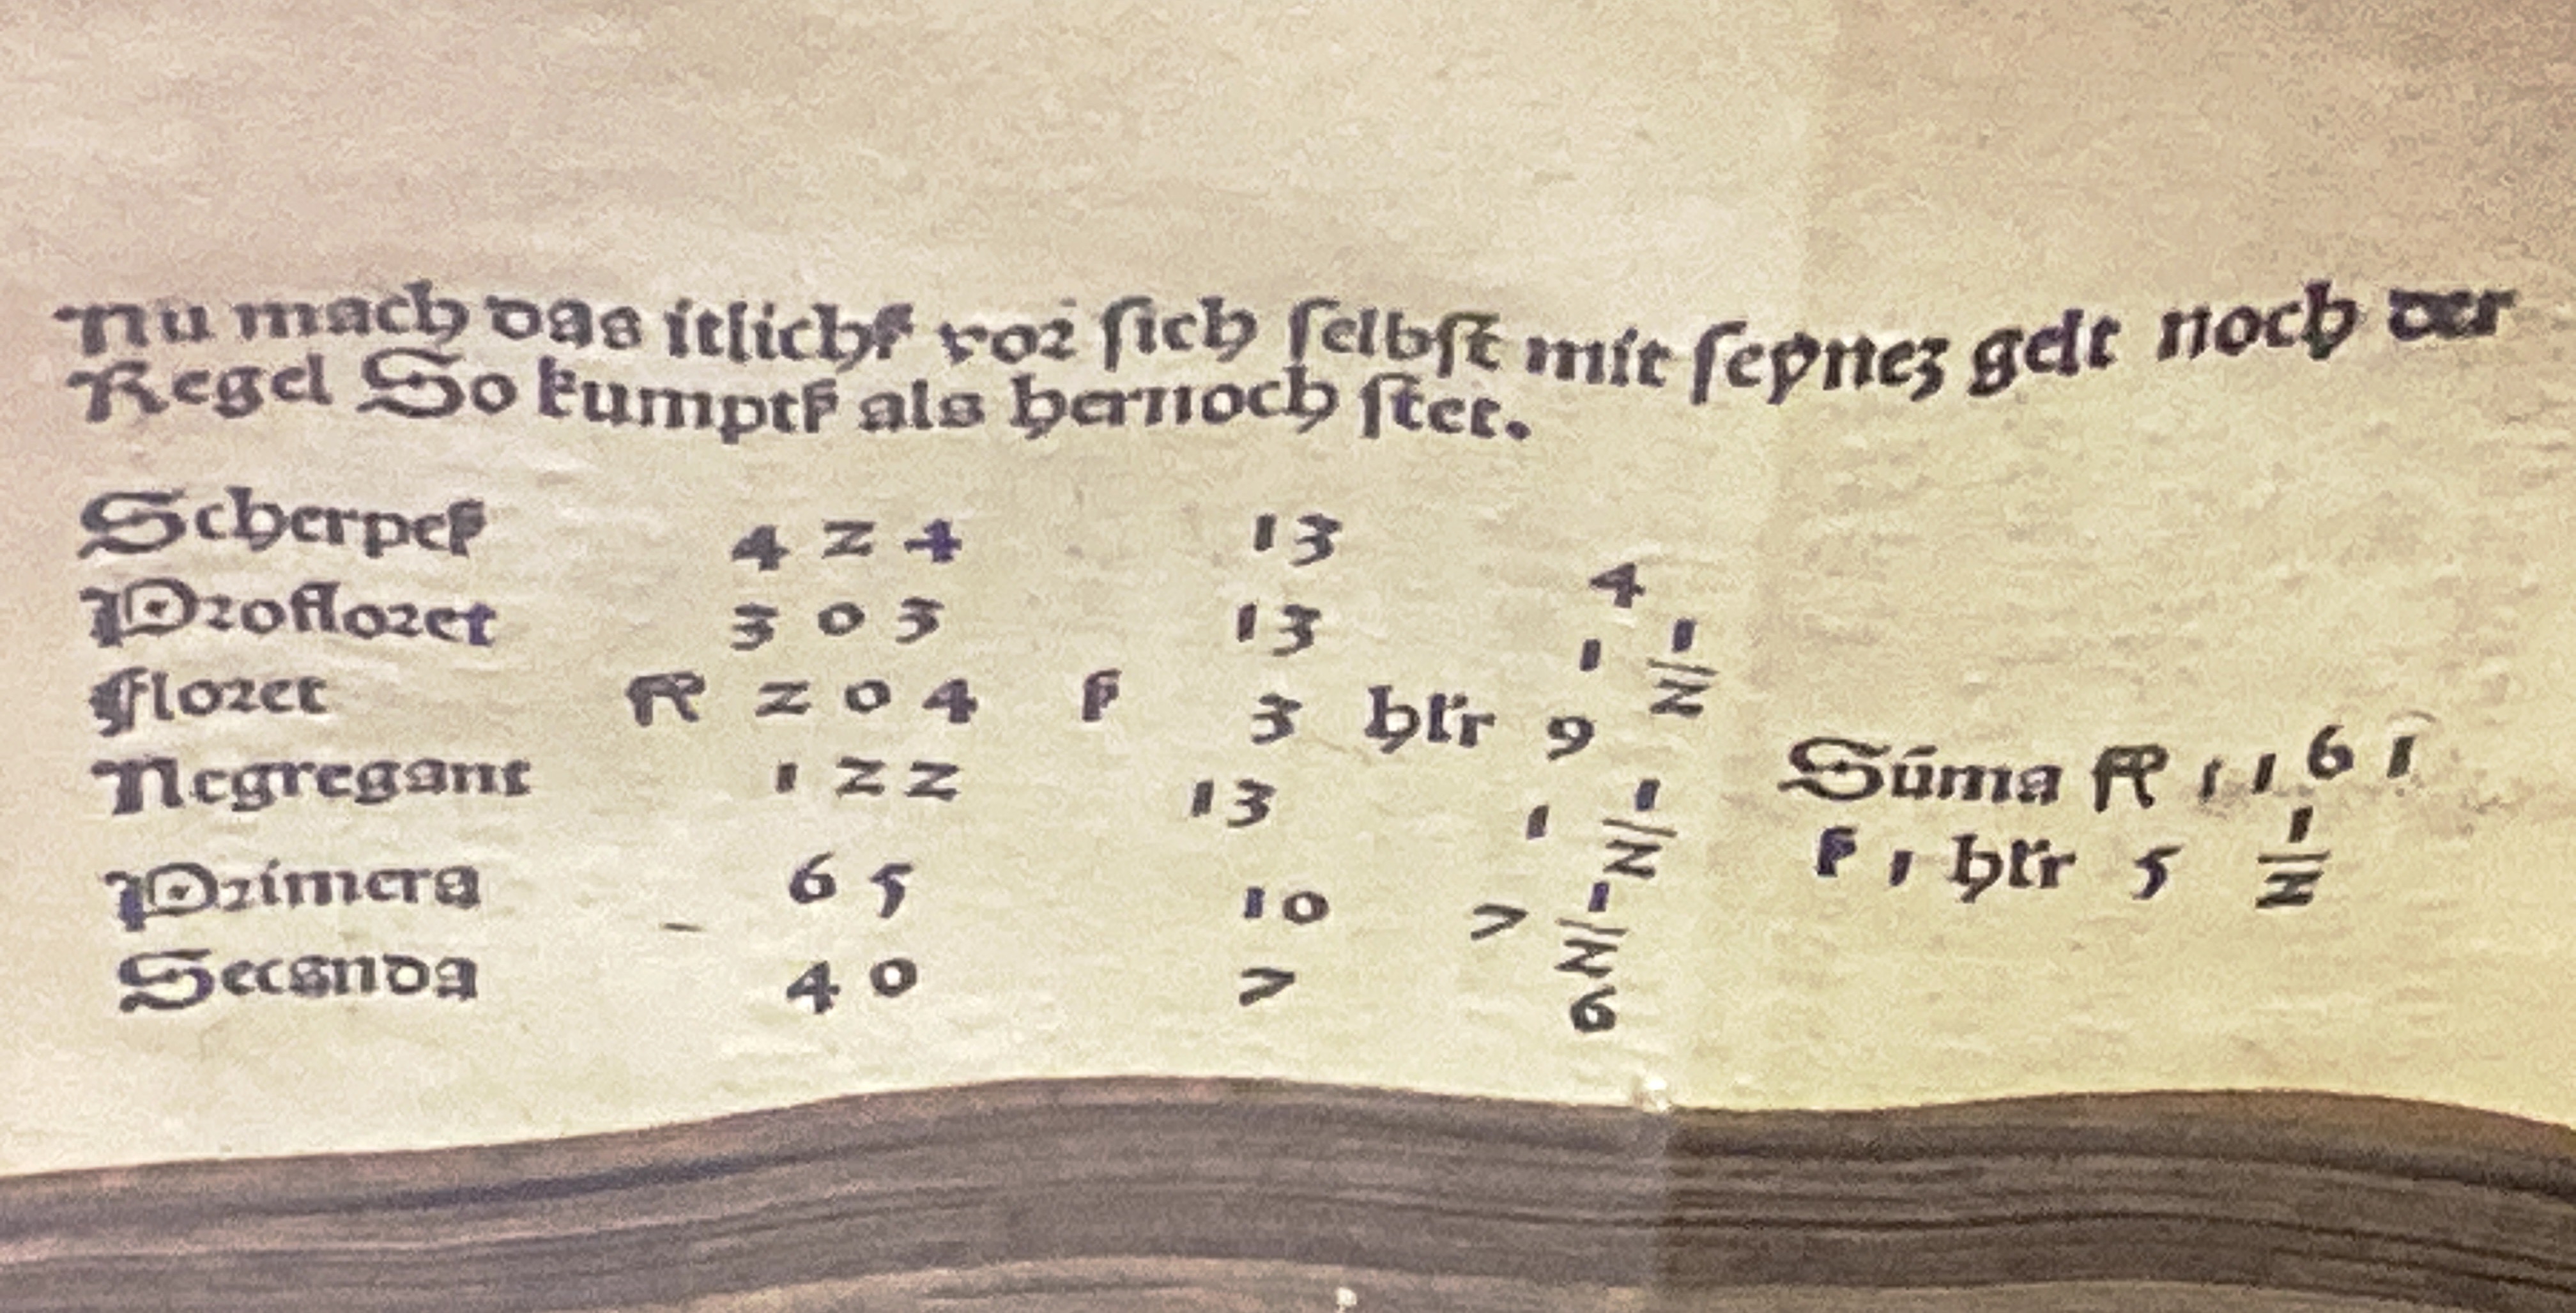 Nu mach das itlichß vor sich selbst mit seynez gelt noch der
Regel So kumptß als hernoch stet.
Scherpeß 424 13 4
Profloret 303 13 1 1/2
floret fl 204 ß 3 hlr 9
Negregant 122 13 1 1/2
Primera 65 10 7 1/2
Secunda 40 7 6
Sūma fl 1161
ß 1 hlr 5 1/2